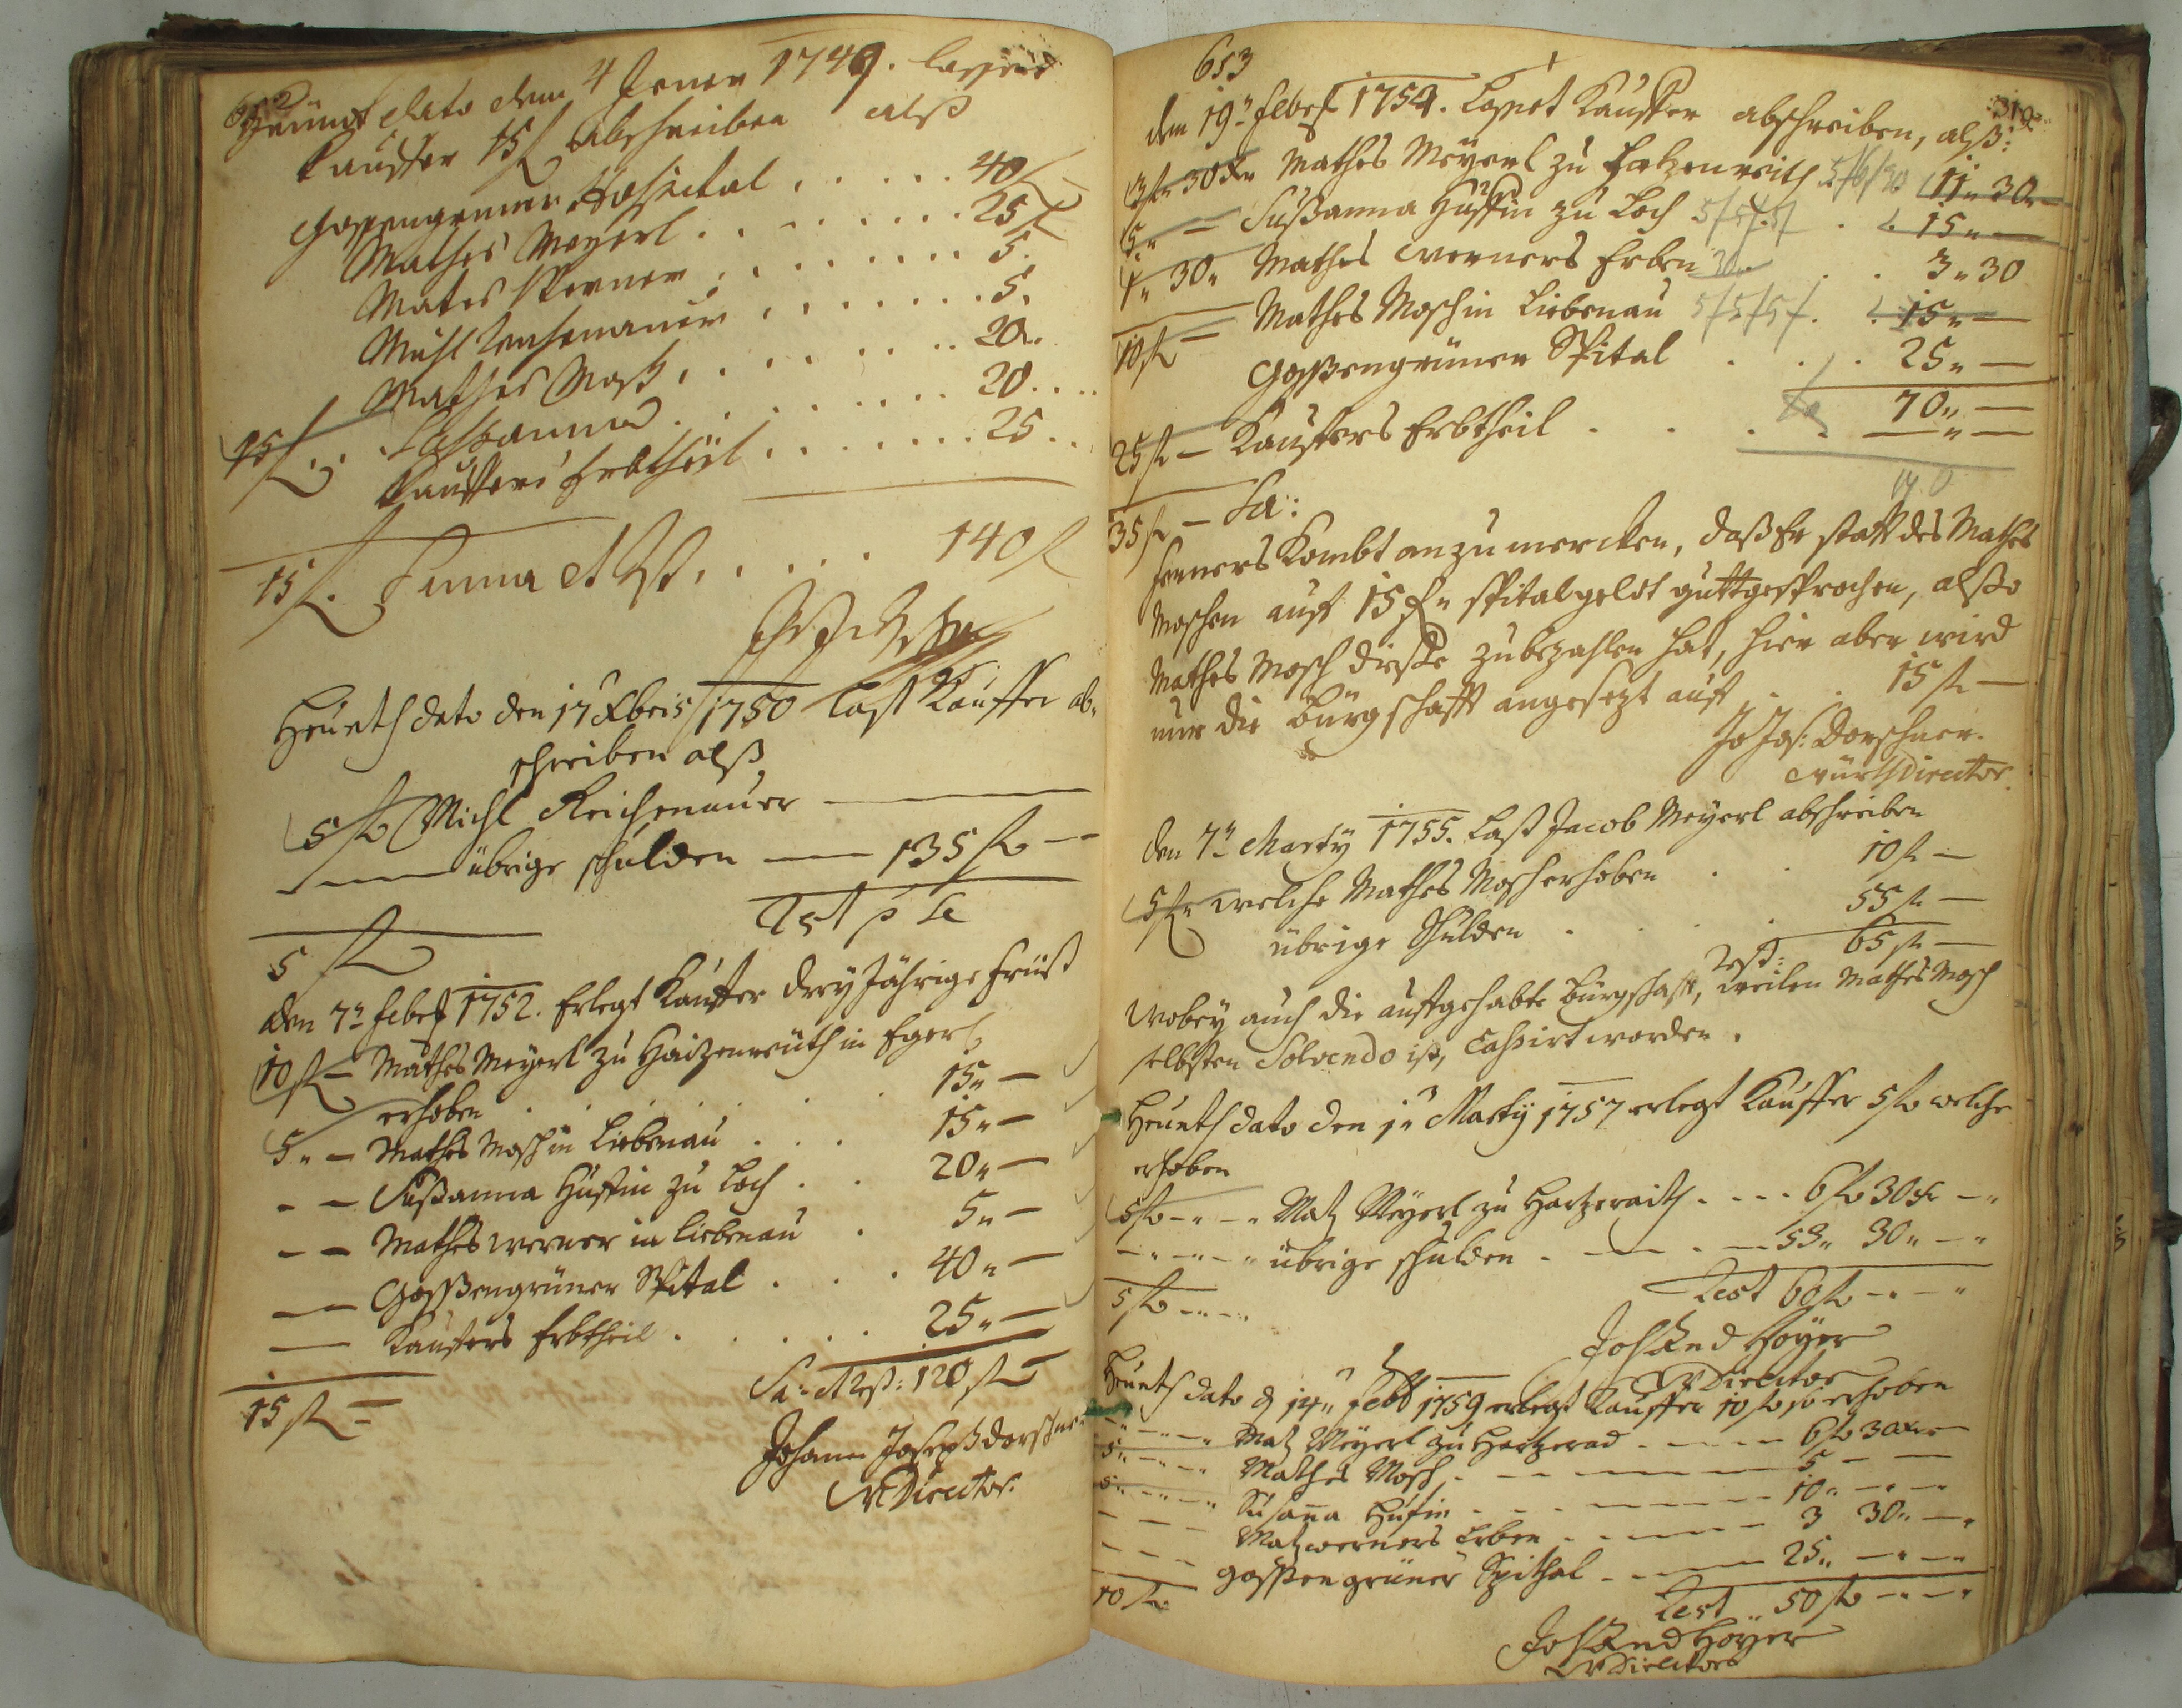 652
Heünt dato dem 4 Jener 1749. lassend
Kauffer 15 f abschreiben alß
Gossengrüner Hospital . . . . . 40 f
Mathes Meyerl . . . . . . . 25 f
Mates Werner . . . . . . . 5.
Michl Reichenauer . . . . . . 5.
Mathes Mosch . . . . . . 20..
15 f . . Susanna . . . . . . . 20....
Kauffers Erbtheil . . . . . . . 25..
15 f. Summa et Rest . . . . . 140 f
Heünth dato den 17 Xbris 1750 last Kauffer ab-
schreiben alß
5 fl Michl Reichenauer ——
—— übrige schulden —— 135 fl —
5 fl Rest p Se
den 7n Febr 1752. Erlegt Kauffer drey Jährige Früst
10 fl — Mathes Meyerl zu Haizenreüth in Eger
erhoben . . . . . . . 15„ —
5„ — Mathes Mosch in Liebenau . . . 15„ —
- — Sußanna Hüffin zu Loch . . 20„ —
- — Mathes Werner in Liebenau . 5„ —
—— Gossßengrüner Spital . . . . 40„ —
—— Kauffers Erbtheil . . . . . . 25„ —
15 fl — Sa: et Rest: 120 fl —
Johann Joseph Dorschner
W Director.
653
319
den 19n Febr 1754. Lasset Kauffer abschreiben, alß:
3 fl 30 Xr Mathes Meyerl zu Hatzenreith 5/6/30 11„ 30„
5„ — Sußanna Hüffin zu Loch 5/5/5/ . 15„ —
1„ 30„ Mathes Werners Erben 30 . . 3„ 30
Mathes Mosch in Liebenau 5/5/5/ . . 15„ —
10 fl — Gossßengrüner Spital . . . 25„ —
70„ —
25 fl — Kauffers Erbtheil . . . . —„—
35 fl — Sa:
Ferners Kombt anzumercken, daß Er statt des Mathes
Moschen auff 15 fl„ spitalgeldt guttgesprochen, alßo
Mathes Mosch dieße zubezahlen hat, hier aber wird
nur die Bürgschafft angesezt auff . . 15 fl —
Jo Jos: Dorschner.
Würthsdirector.
den 7n Marty 1755. Last Jacob Meyerl abschreiben
5 fl„ welche Mathes Mosch erhoben . . 10 fl —
übrige Schulden . . . . 55 fl —
Rest: 65 fl —
Wobey auch die auffgehabte Bürgschafft, weilen Mathes Mosch
selbsten Solvendo ist, Cassirt worden.
Heünth dato den 1n Marty 1757 erlegt Kauffer 5 fl welche
erhoben
5 fl —„—„ Matz Meyerl zu Hartzeraith . . . . 6 fl 30 Xr —„
—„—„—„ übrige schulden . — . — 53„ 30„ —„
5 fl —„— Rest 60 fl —„—„
Joh And Hoyer
W Director
Heünth dato d 14n Febr 1759 erlegt Kauffer 10 fl so erhoben
—„—„—„ Matz Meyerl zu Hartzerad . — — — 6 fl 30 Xr —
5„ —„—„ Mathes Mosch . — — — — — 5 — —
5„ —„—„ Susanna Hüfin . . — — — — 10„ —„—„
— — — Matz Werners Erben . . — — — 3 30„ —„
— — — Gossßengrüner Spithal . — — — 25„ —„—„
10 fl. Rest „ 50 fl —„—„
Joh And Hoyer
W Directors